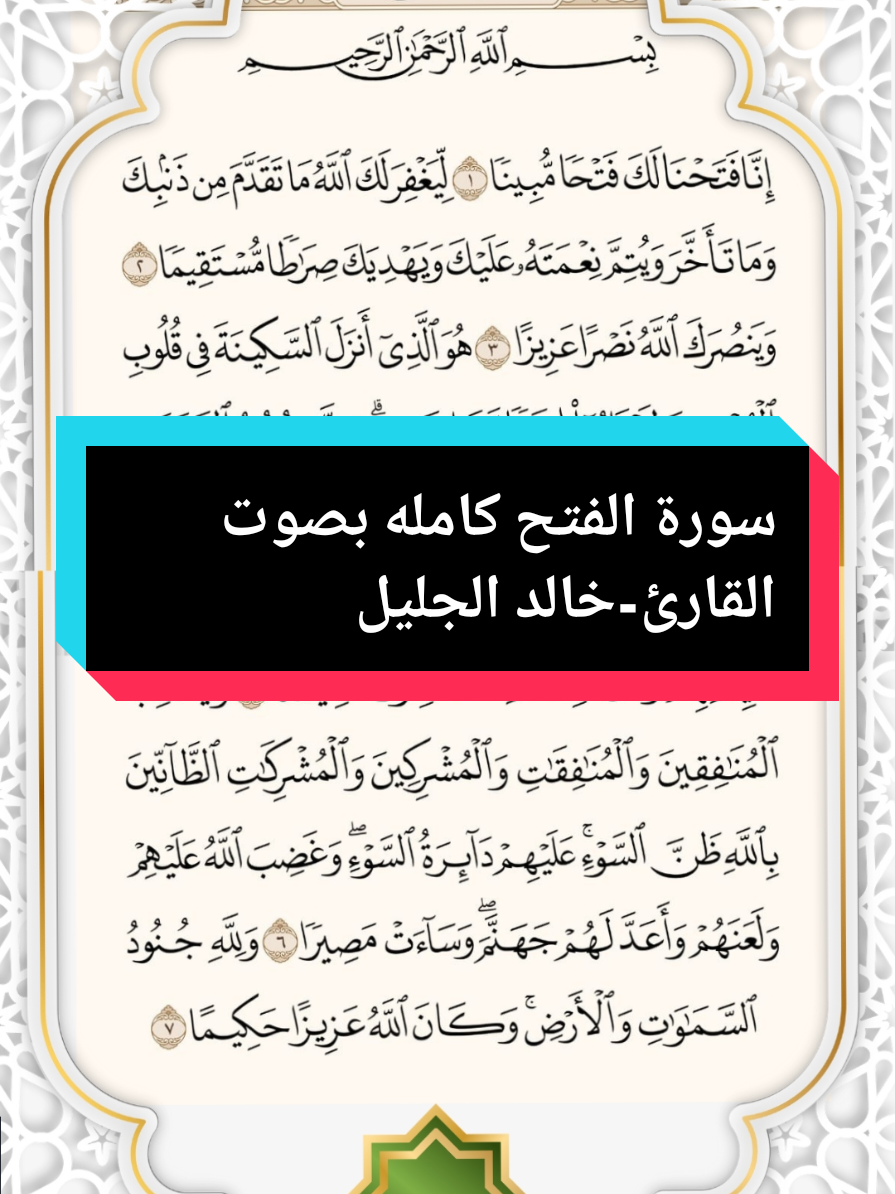 بِسْمِ ٱللَّهِ ٱلرَّحْمَٰنِ ٱلرَّحِيمِ
إِنَّا فَتَحْنَا لَكَ فَتْحًا مُّبِينًا ١ لِّيَغْفِرَ لَكَ ٱللَّهُ مَا تَقَدَّمَ مِن ذَنۢبِكَ
وَمَا تَأَخَّرَ وَيُتِمَّ نِعْمَتَهُۥ عَلَيْكَ وَيَهْدِيَكَ صِرَٰطًا مُّسْتَقِيمًا ٢
وَيَنصُرَكَ ٱللَّهُ نَصْرًا عَزِيزًا ٣ هُوَ ٱلَّذِىٓ أَنزَلَ ٱلسَّكِينَةَ فِى قُلُوبِ
سورة الفتح كامله بصوت
القارئ-خالد الجليل
ٱلْمُنَٰفِقِينَ وَٱلْمُنَٰفِقَٰتِ وَٱلْمُشْرِكِينَ وَٱلْمُشْرِكَٰتِ ٱلظَّآنِّينَ
بِٱللَّهِ ظَنَّ ٱلسَّوْءِۚ عَلَيْهِمْ دَآئِرَةُ ٱلسَّوْءِۖ وَغَضِبَ ٱللَّهُ عَلَيْهِمْ
وَلَعَنَهُمْ وَأَعَدَّ لَهُمْ جَهَنَّمَۖ وَسَآءَتْ مَصِيرًا ٦ وَلِلَّهِ جُنُودُ
ٱلسَّمَٰوَٰتِ وَٱلْأَرْضِۚ وَكَانَ ٱللَّهُ عَزِيزًا حَكِيمًا ٧